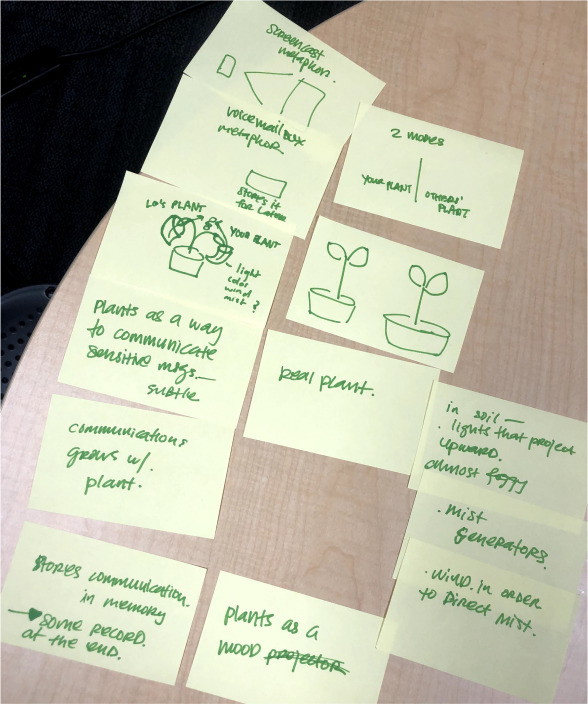 SCREENCAST
metaphor.
voicemail BOX
metaphor
STORES it
for Later
2 modes
YOUR PLANT
OTHERS'
PLANT
LO'S PLANT
YOUR PLANT
light
color
wind
mist ?
Plants as a way
to communicate
sensitive msgs—
subtle
Real plant.
in soil —
. lights that project
upward.
almost foggy
communications
grows w/.
plant.
. mist
Generators.
. wind. in order
to Direct mist.
Stores communication.
in memory
→ some record.
at the end.
plants as a
mood projector